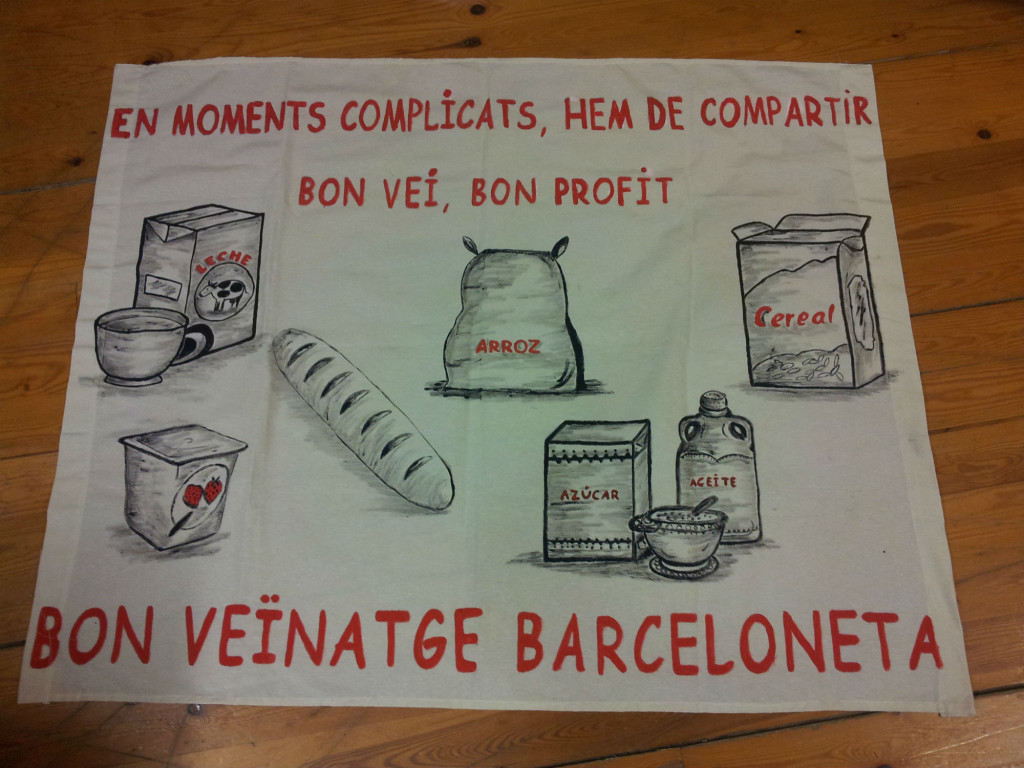 EN MOMENTS COMPLICATS, HEM DE COMPARTIR
BON VEI, BON PROFIT
LECHE
ARROZ
Cereal
AZÚCAR
ACEITE
BON VEÏNATGE BARCELONETA